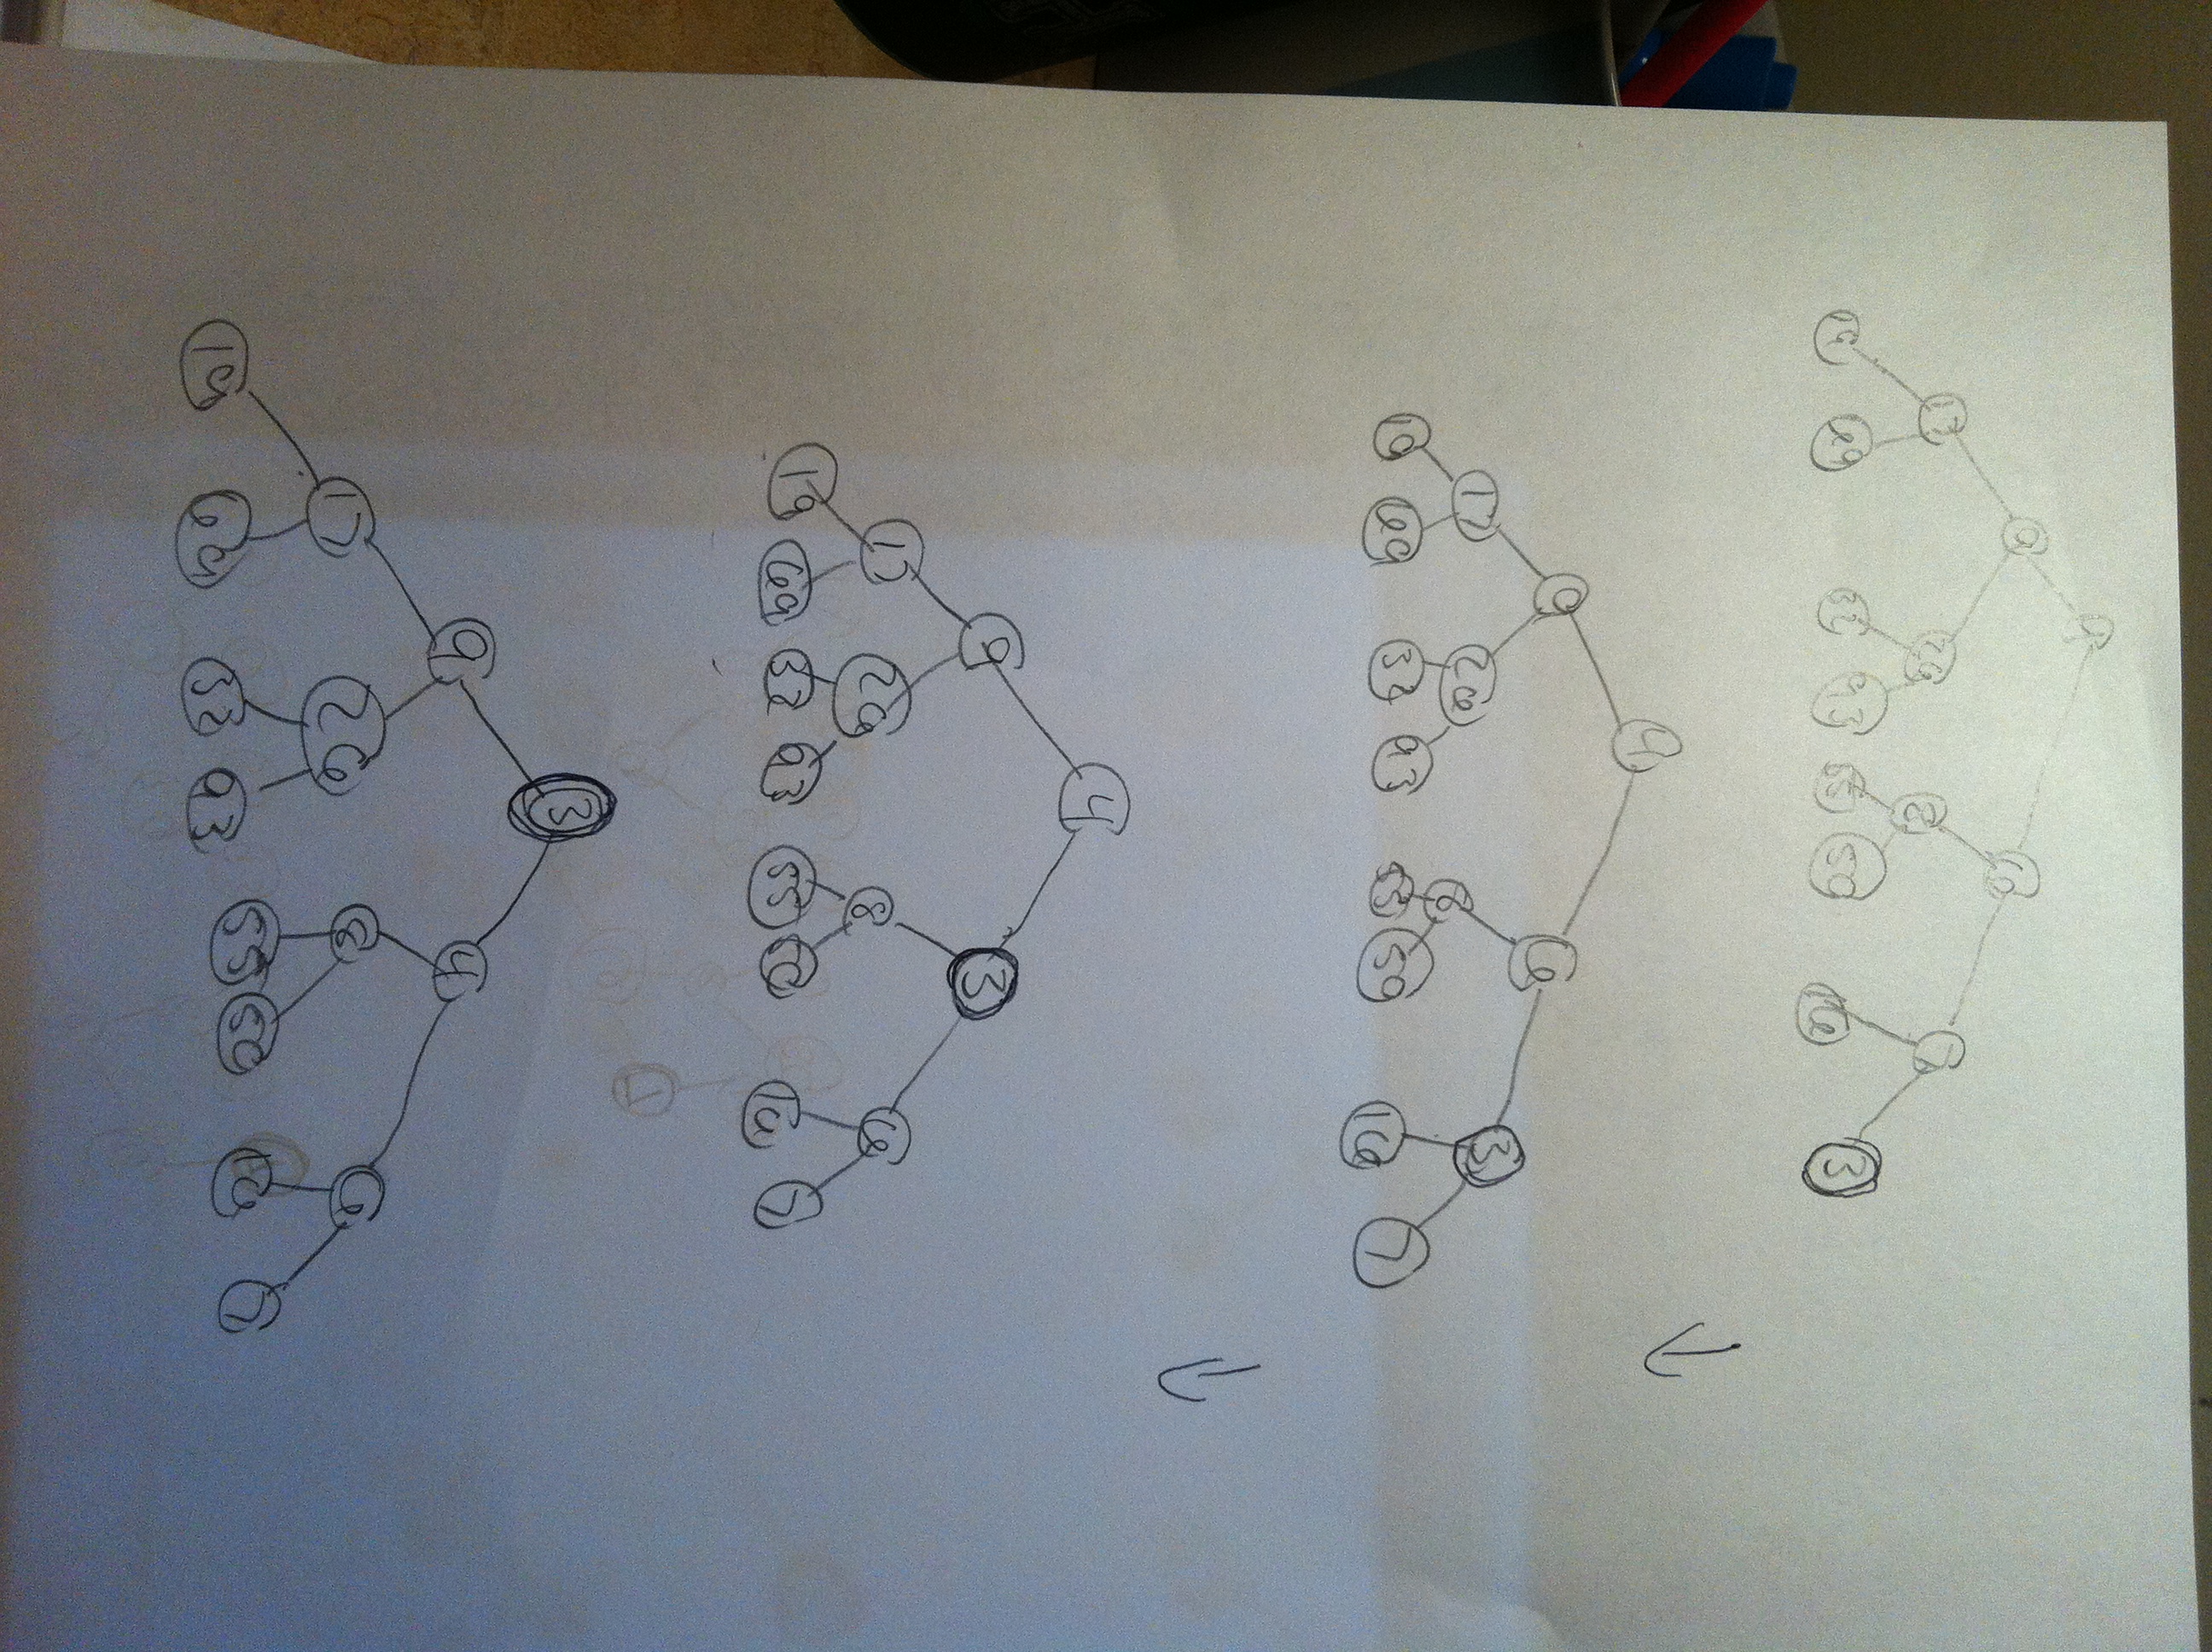 4
9 6
17 26 8 7
19 69 32 93 55 50 16 3
4
9 6
17 26 8 3
19 69 32 93 55 50 16 7
4
9 3
17 26 8 6
19 69 32 93 55 50 16 7
3
9 4
17 26 8 6
19 69 32 93 55 50 16 7